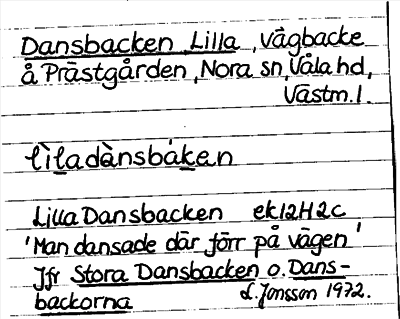 Dansbacken, Lilla, vägbacke
å Prästgården, Nora sn, Våla hd,
Västm. l.
lìladànsbàken
Lilla Dansbacken ek 12H2c
'Man dansade där förr på vägen'
Jfr Stora Dansbacken o. Dans-
backorna L. Jonsson 1972.